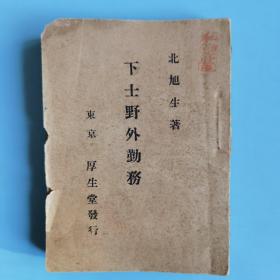 北旭生著
下士野外勤務
東京 厚生堂發行